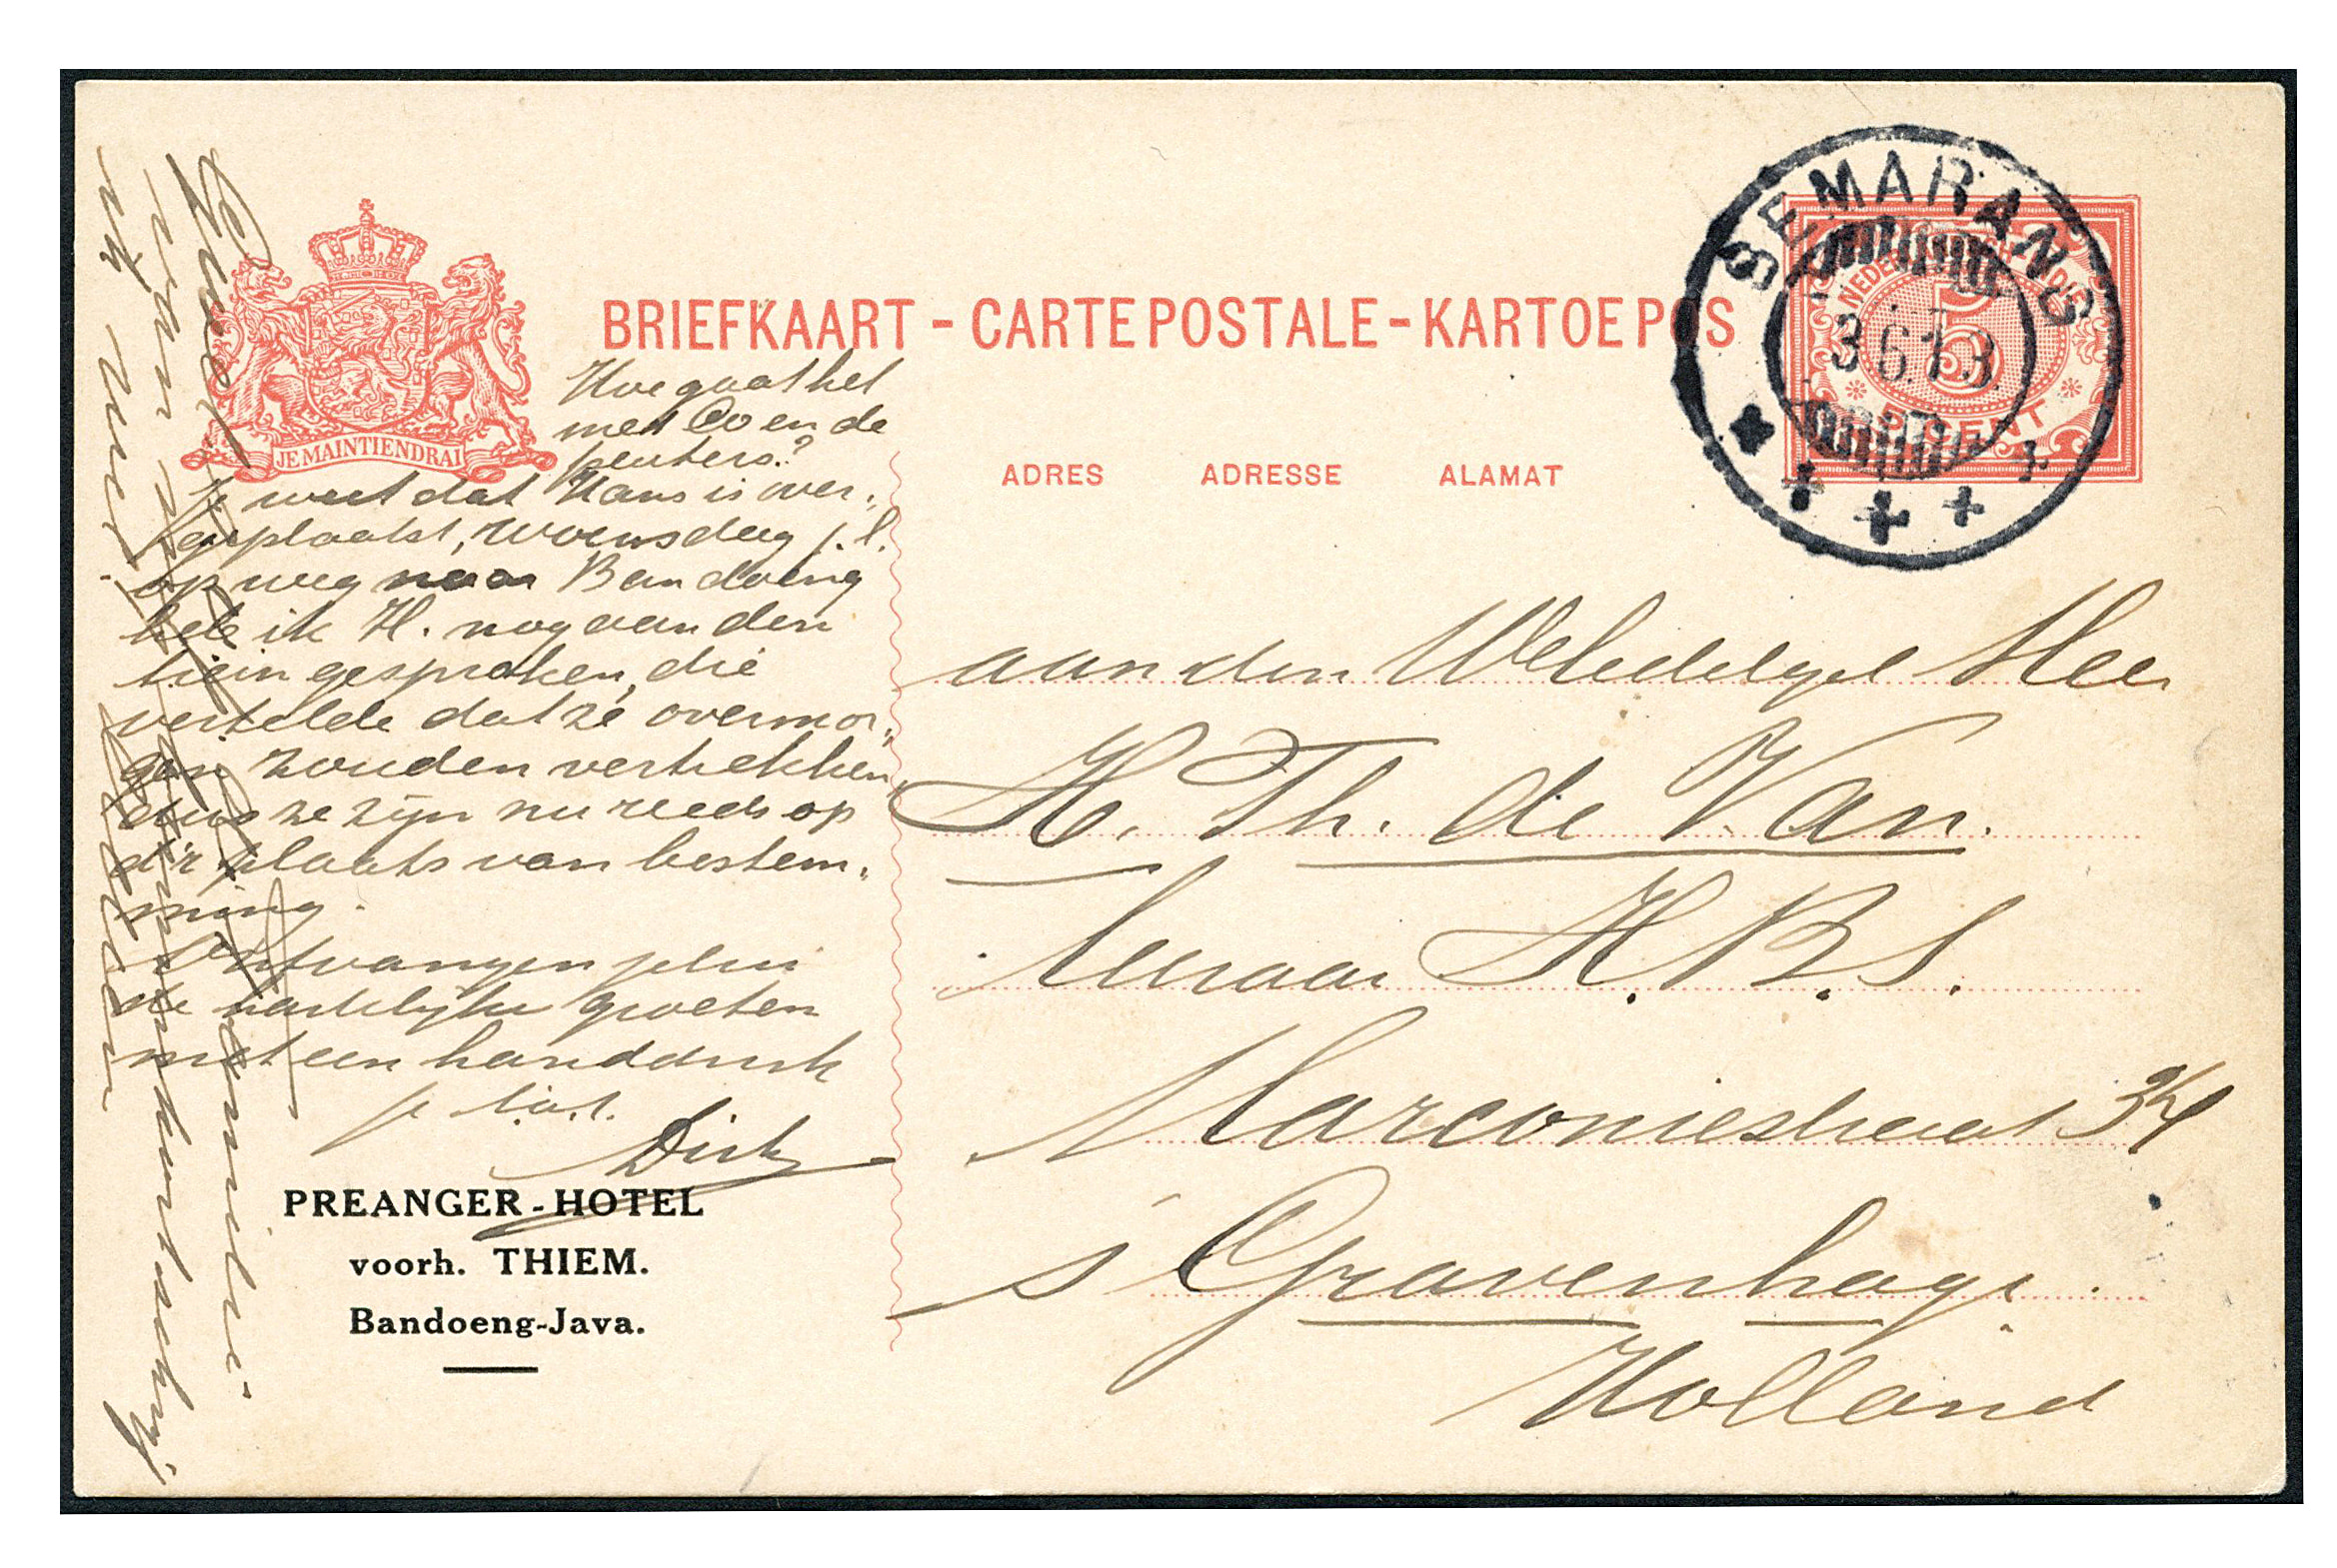 BRIEFKAART - CARTE POSTALE - KARTOE POS
JE MAINTIENDRAI
SEMARANG
3.6.13
5
5 CENT
ADRES ADRESSE ALAMAT
Hoe gaat het
met Co en de
peuters?
Je weet dat Hans is over„
geplaatst, Woensdag j.l.
op weg naar Bandoeng
heb ik H. nog aan den
trein gesproken, die
vertelde dat ze overmor„
gen zouden vertrekken
dus ze zijn nu reeds op
d'r plaats van bestem„
ming.
Ontvangen jelui
de hartelijke groeten
met een handdruk
je
Dirk
PREANGER-HOTEL
voorh. THIEM.
Bandoeng-Java.
aan den WelEdelgel Heer
H. Th. de Van.
leeraar H.B.S.
Marconiestraat 34
s' Gravenhage.
Holland